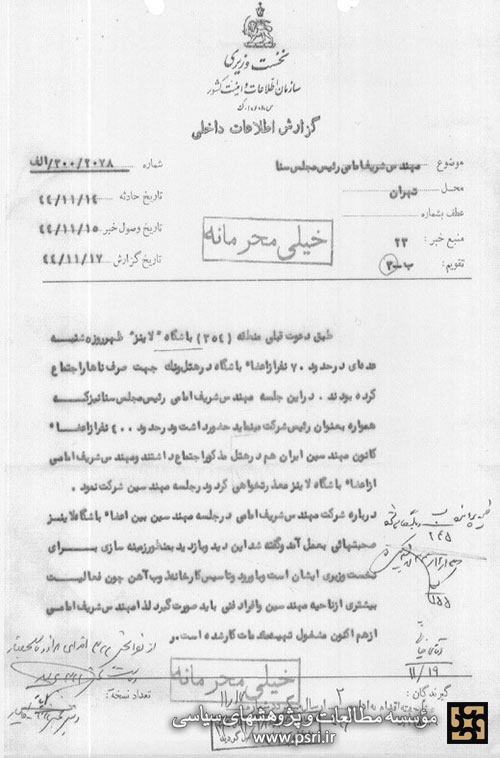 نخست وزیری
سازمان اطلاعات و امنیت کشور
س.ا.و.ا.ک
گزارش اطلاعات داخلی
موضوع مهندس شریف امامی رئیس مجلس سنا
شماره ۲۰۷۸/۳۰۰/الف
محل تهران
تاریخ حادثه ۴۴/۱۱/۱۴
عطف بشماره
تاریخ وصول خبر ۴۴/۱۱/۱۵
منبع خبر: ۲۳
تاریخ گزارش ۴۴/۱۱/۱۷
تقویم: ب-۳
خیلی محرمانه
طبق دعوت قبلی منطقه (۳۵۴) باشگاه "لاینز" ظهر روز شنبه
عده‌ای در حدود ۷۰ نفر از اعضاء باشگاه در هتل ونک جهت صرف ناهار اجتماع
کرده بودند. در این جلسه مهندس شریف امامی رئیس مجلس سنا نیز که
همواره بعنوان رئیس شرکت مینماید حضور داشت و در حدود ۴۰۰ نفر از اعضاء
کانون مهندسین ایران هم در هتل مذکور اجتماع داشتند و مهندس شریف امامی
از اعضاء باشگاه لاینز معذرتخواهی کرد و در جلسه مهندسین شرکت نمود.
درباره شرکت مهندس شریف امامی در جلسه مهندسین بین اعضاء باشگاه لاینز
صحبتهائی بعمل آمد و گفته شد این دید و بازدید بمنظور زمینه سازی برای
نخست وزیری ایشان است و با ورود و تاسیس کارخانه ذوب آهن چون فعالیت
بیشتری از ناحیه مهندسین و افراد فنی باید صورت گیرد لذا مهندس شریف امامی
از هم اکنون مشغول تهیه مقدمات کار شده است.
۲۴۵
آقای
۱۱/۱۹
خیلی محرمانه
گیرندگان:
تعداد نسخه:
۲
مؤسسه مطالعات و پژوهشهای سیاسی
www.psri.ir